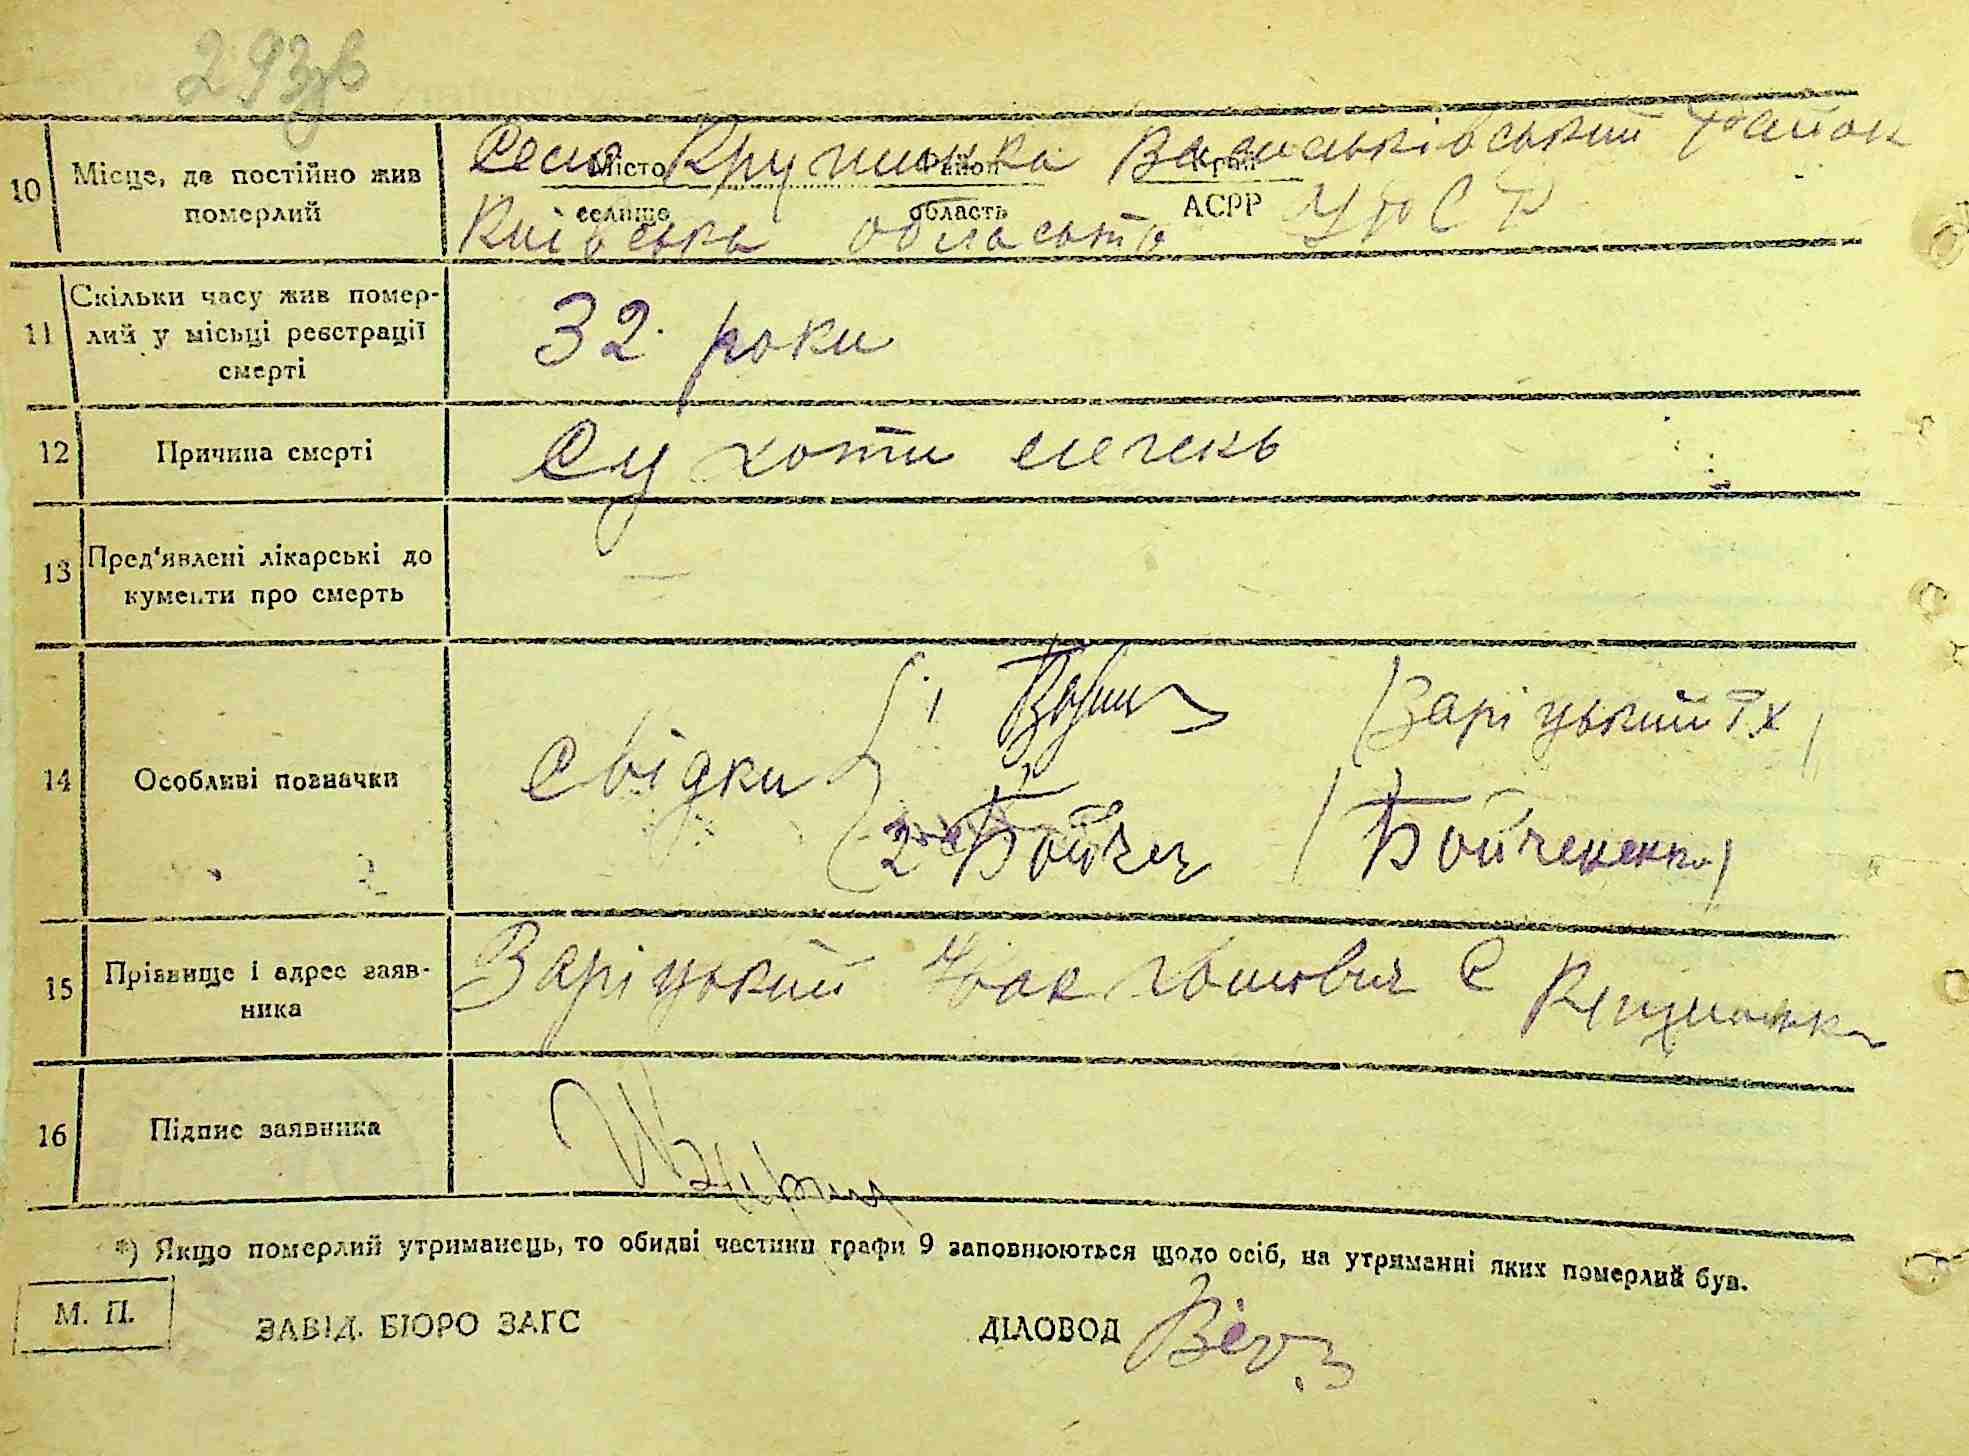 293зв
10 Місце, де постійно жив померлий
Село Крушинка Васильківський район
Місто район край
селище область АСРР
Київська область УРСР
11 Скільки часу жив помер-
лий у місьці реєстрації
смерті
32 роки
12 Причина смерті
Сухоти легень
13 Пред'явлені лікарські до
кументи про смерть
14 Особливі позначки
Свідки 1 (Заріцький Т Х)
2 Бойче (Бойченко)
15 Прізвище і адрес заяв-
ника
Заріцький Іван Іванович с Крушинка
16 Підпис заявника
*) Якщо померлий утриманець, то обидві частини графи 9 заповнюються щодо осіб, на утриманні яких померлий був.
М. П.
ЗАВІД. БЮРО ЗАГС ДІЛОВОД